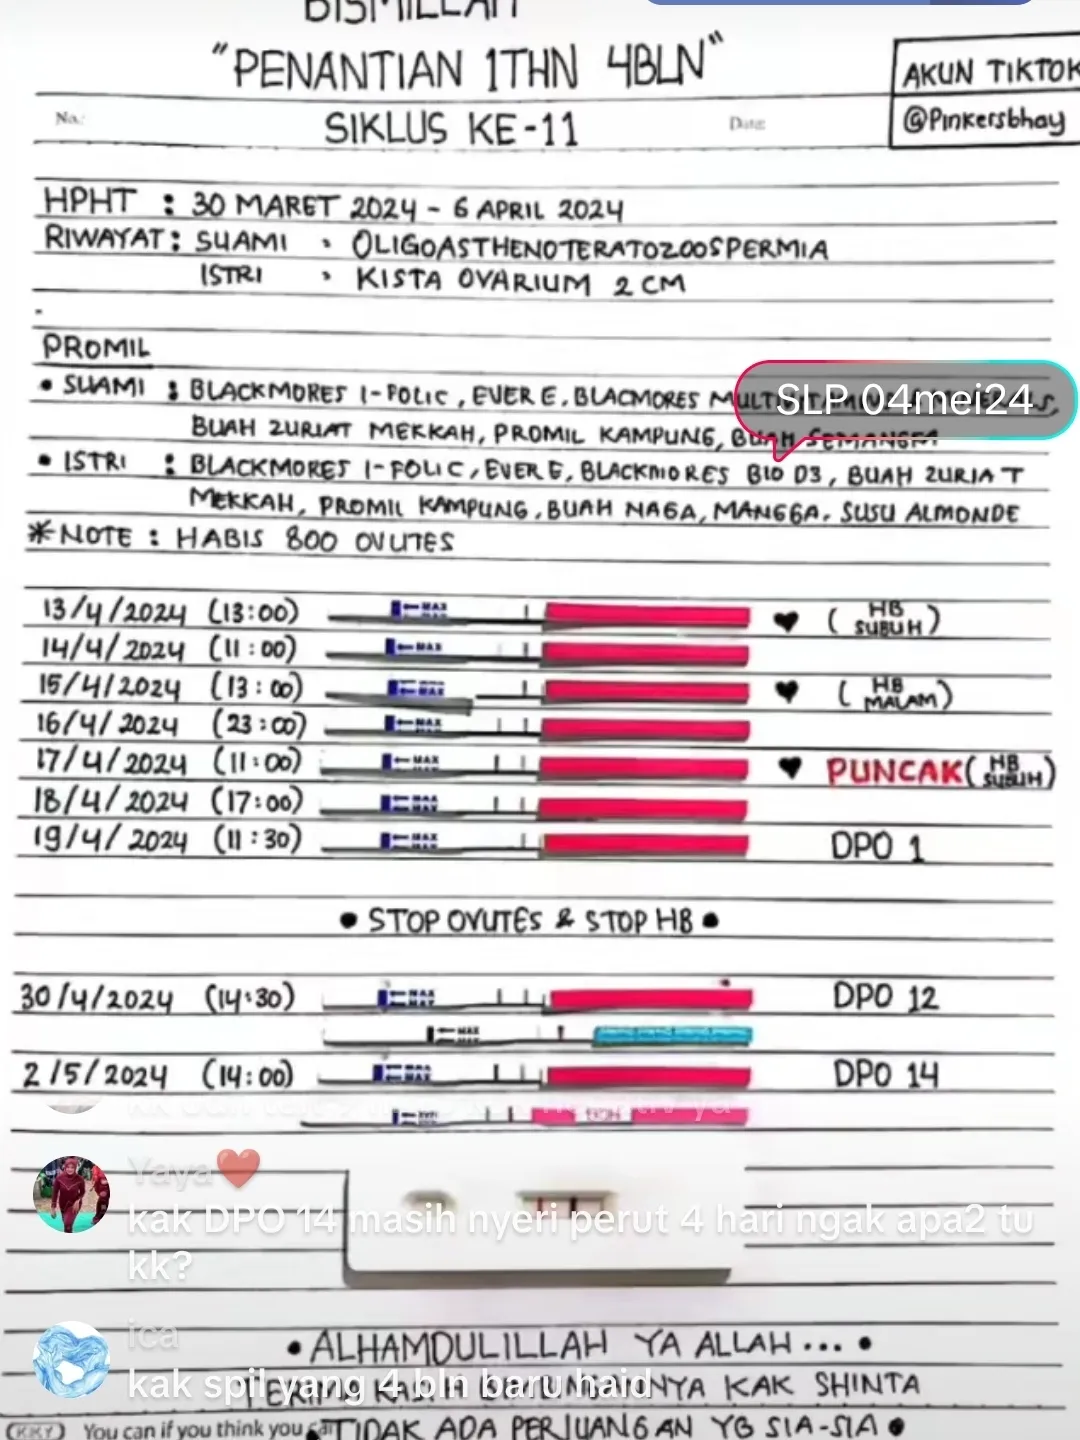 BISMILLAH
"PENANTIAN 1THN 4BLN"
AKUN TIKTOK
@Pinkersbhay
No.:
SIKLUS KE-11
Date:
HPHT : 30 MARET 2024 - 6 APRIL 2024
RIWAYAT : SUAMI : OLIGOASTHENOTERATOZOOSPERMIA
ISTRI : KISTA OVARIUM 2 CM
PROMIL
• SUAMI : BLACKMORES I-FOLIC, EVER E, BLACMORES
SLP 04mei24
BUAH ZURIAT MEKKAH, PROMIL KAMPUNG, BUAH SEMANGKA
• ISTRI : BLACKMORES I-FOLIC, EVER E, BLACKMORES BIO D3, BUAH ZURIAT
MEKKAH, PROMIL KAMPUNG, BUAH NAGA, MANGGA, SUSU ALMONDE
*NOTE : HABIS 800 OVUTES
13/4/2024 (13:00) MAX ♥ (HB SUBUH)
14/4/2024 (11:00) MAX
15/4/2024 (13:00) MAX ♥ (HB MALAM)
16/4/2024 (23:00) MAX
17/4/2024 (11:00) MAX ♥ PUNCAK (HB SUBUH)
18/4/2024 (17:00) MAX
19/4/2024 (11:30) MAX DPO 1
• STOP OVUTES & STOP HB •
30/4/2024 (14:30) MAX DPO 12
MAX
2/5/2024 (14:00) MAX DPO 14
Yaya❤️
kak DPO 14 masih nyeri perut 4 hari ngak apa2 tu
kk?
• ALHAMDULILLAH YA ALLAH... •
ica
kak spil yang 4 bln baru haid
KAK SHINTA
KKY You can if you think you can
TIDAK ADA PERJUANGAN YG SIA-SIA •